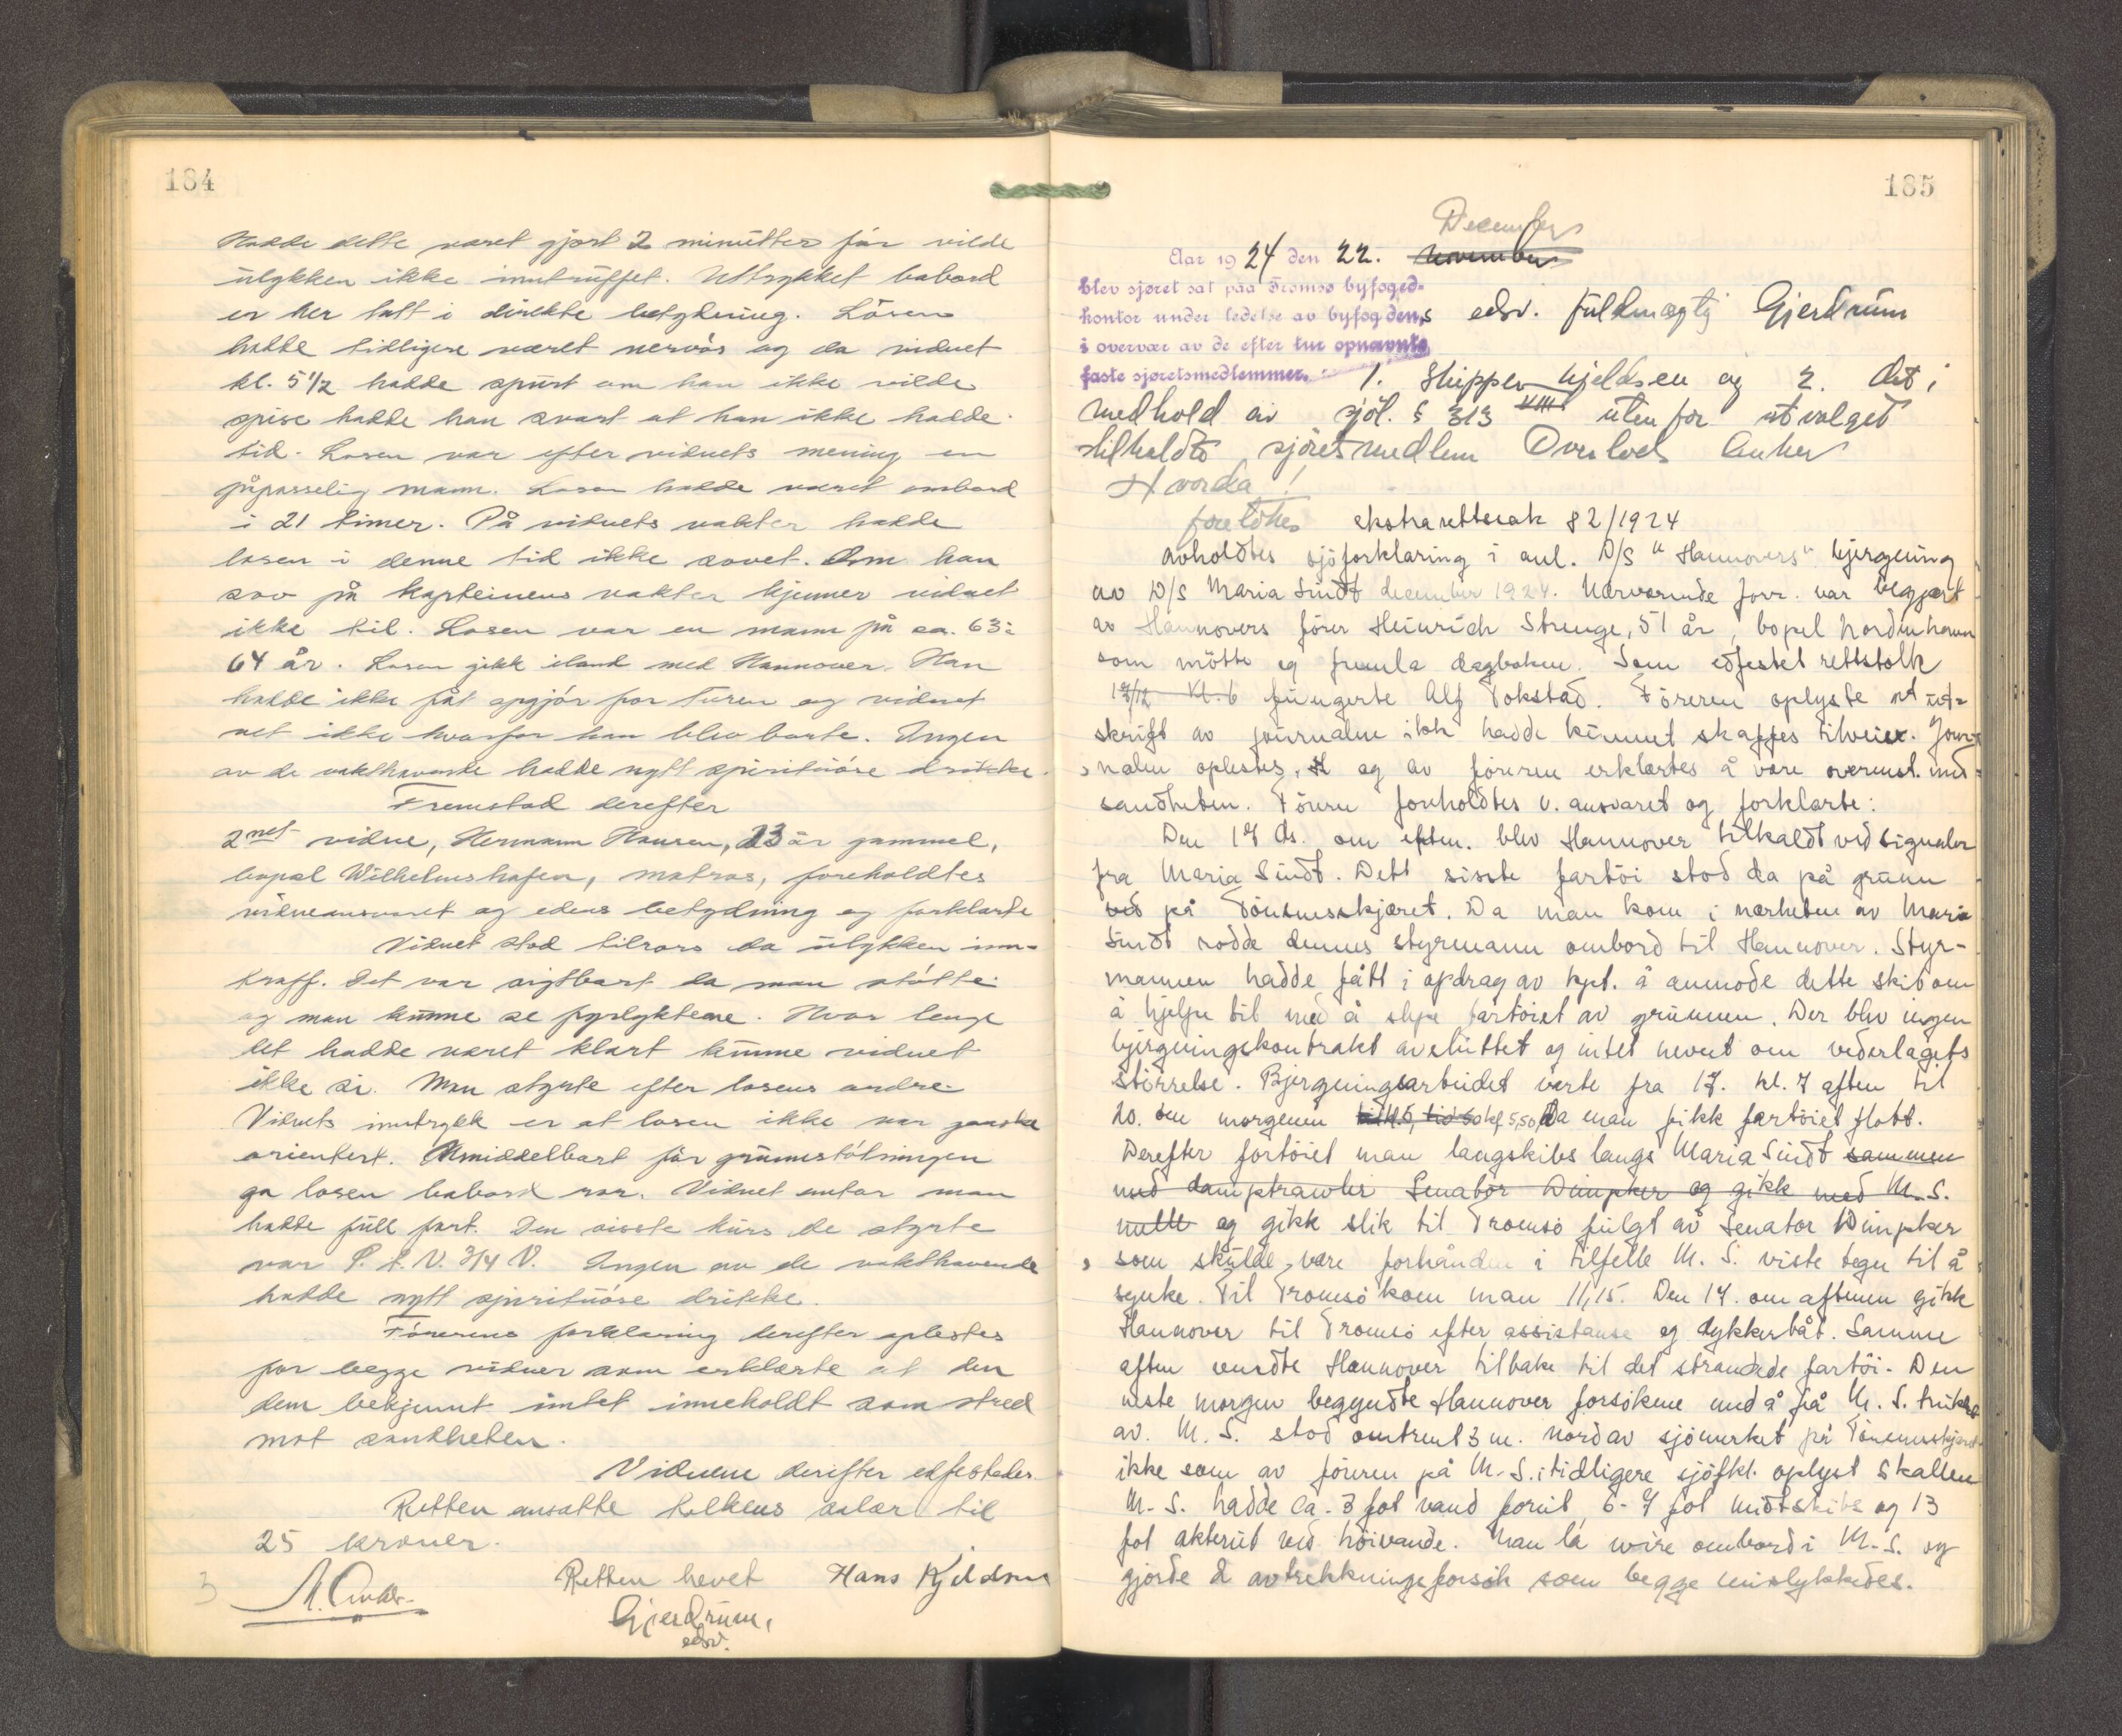 184
Hadde dette været gjort 2 minutter før vilde
ulykken ikke inntruffet. Uttrykket babord
er her tatt i direkte betydning. Losen
hadde tidligere været nervøs og da vidnet
kl. 5 1/2 hadde spurt om han ikke vilde
spise hadde han svart at han ikke hadde
tid. Losen var efter vidnets mening en
påpasselig mann. Losen hadde været ombord
i 21 timer. På vidnets vakter hadde
losen i denne tid ikke sovet. Om han
sov på kapteinens vakter kjenner vidnet
ikke til. Losen var en mann på ca. 63-
64 år. Losen gikk iland med Hannover. Han
hadde ikke fåt opgjør for turen og vidnet
vet ikke hvorfor han blev borte. Ingen
av de vakthavende hadde nytt spirituøse drikke.
Fremstod derefter
2net vidne, Hermann Hansen, 23 år gammel,
bopæl Wilhelmshafen, matros, foreholdtes
vidneansvaret og edens betydning og forklarte
Vidnet stod tilrors da ulykken inn-
traff. Det var sigtbart da man støtte
og man kunne se fyrlyktene. Hvor lenge
det hadde været klart kunne vidnet
ikke si. Man styrte efter losens ordre.
Vidnets inntrykk er at losen ikke var ganske
orientert. Umiddelbart før grunnstøtningen
ga losen babord ror. Vidnet antar man
hadde full fart. Den siste kurs de styrte
var S. t. V. 3/4 V. Ingen av de vakthavende
hadde nytt spirituøse drikke.
Førerens forklaring derefter oplestes
for begge vidner som erklærte at den
dem bekjennt intet inneholdt som stred
mot sandheten.
Vidnene derifter edfestedes.
Retten ansatte tolkens salær til
25 kroner.
Retten hevet Hans Kjeldsen
Gjerdrum,
edsv.
185
December
Aar 1924 den 22. november
blev sjøret sat paa Tromsø byfoged-
kontor under ledelse av byfogdens edsv. fuldmægtig Gjerdrum
i overvær av de efter tur opnævnte
faste sjøretsmedlemmer. 1. Skipper Kjeldsen og 2. det i
medhold av sjöl. § 313 utenfor utvalget
tilholdte sjöretsmedlem Overlods Anker
Hvorda!
foretokes ekstrarettssak 82/1924
avholdtes sjöforklaring i anl. D/S "Hannovers" bjergning
av D/S Maria Sindt december 1924. Nærværende forr. var begjært
av Hannovers förer Heinrich Strenge, 51 år, bopel Nordenham
som mötte og fremla dagboken. Som edfestet rettstolk
17/12 Kl. 6 fungerte Alf Tokstad. Föreren oplyste at ut-
skrift av journalen ikke hadde kunnet skaffes tilveie. Jour-
nalen oplestes, og av föreren erklærtes å være overenst. med
sandheten. Föreren foreholdtes v. ansvaret og forklarte:
Den 17 ds. om eften. blev Hannover tilkaldt ved signaler
fra Maria Sindt. Dett sisste fartöi stod da på grunn
ved på Tönsnesskjæret. Da man kom i nærheten av Maria
Sindt rodde dennes styrmann ombord til Hannover. Styr-
mannen hadde fått i opdrag av kpt. å anmode dette skib om
å hjelpe til med å slepe fartöiet av grunnen. Der blev ingen
bjergningskontrakt avsluttet og intet nevnt om vederlagets
störrelse. Bjergningsarbeidet varte fra 17. kl. 7 aften til
20. om morgenen kl. 5,50, da man fikk fartöiet flott.
Derefter fortöiet man langskibs langs Maria Sindt sammen
med damptrawler Senator Dimpker og gikk med M.S.
og gikk slik til Tromsö fulgt av Senator Dimpker
som skulde være forhånden i tilfelle M. S. viste tegn til å
synke. Til Tromsö kom man 11,15. Den 17. om aftenen gikk
Hannover til Tromsö efter assistanse og dykkerbåt. Samme
aften vendte Hannover tilbake til det strandede fartöi. Den
neste morgen begyndte Hannover forsökene med å få M. S. trukket
av. M. S. stod omtrent 3 m. nord av sjömerket på Tönsnesskjæret
ikke som av föreren på M. S. i tidligere sjöfkl. oplyst Skallen
M. S. hadde ca. 3 fot vand forut, 6-7 fot midtskibs og 13
fot akterut ved höivande. Man la wire ombord i M. S. og
gjorde 2 avtrekkningsforsök som begge mislykkedes.